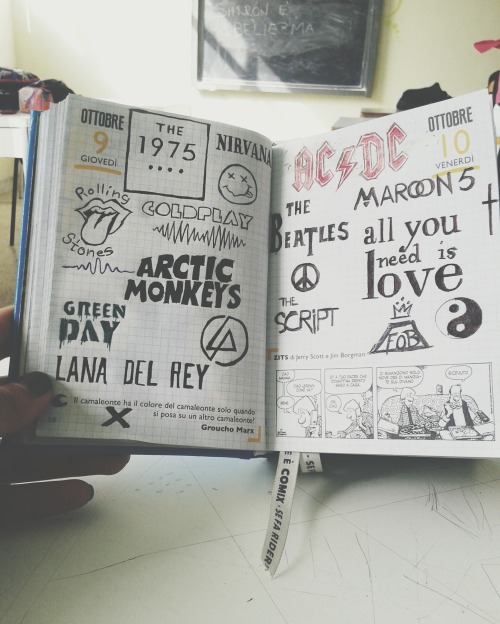 OTTOBRE
9
GIOVEDÌ
THE
1975
NIRVANA
Rolling
Stones
COLDPLAY
ARCTIC
MONKEYS
GREEN
DAY
LANA DEL REY
Il camaleonte ha il colore del camaleonte solo quando
si posa su un altro camaleonte!
Groucho Marx
X
AC DC
OTTOBRE
10
VENERDÌ
MAROON 5
THE
BEATLES
all you
need is
love
THE
SCRIPT
FOB
ZITS di Jerry Scott e Jim Borgman
È COMIX